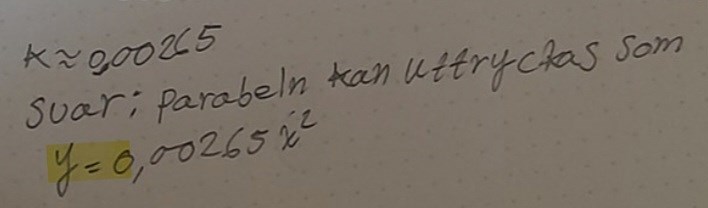 k≈0,00265
Svar: parabeln kan uttryckas som
y=0,00265x²